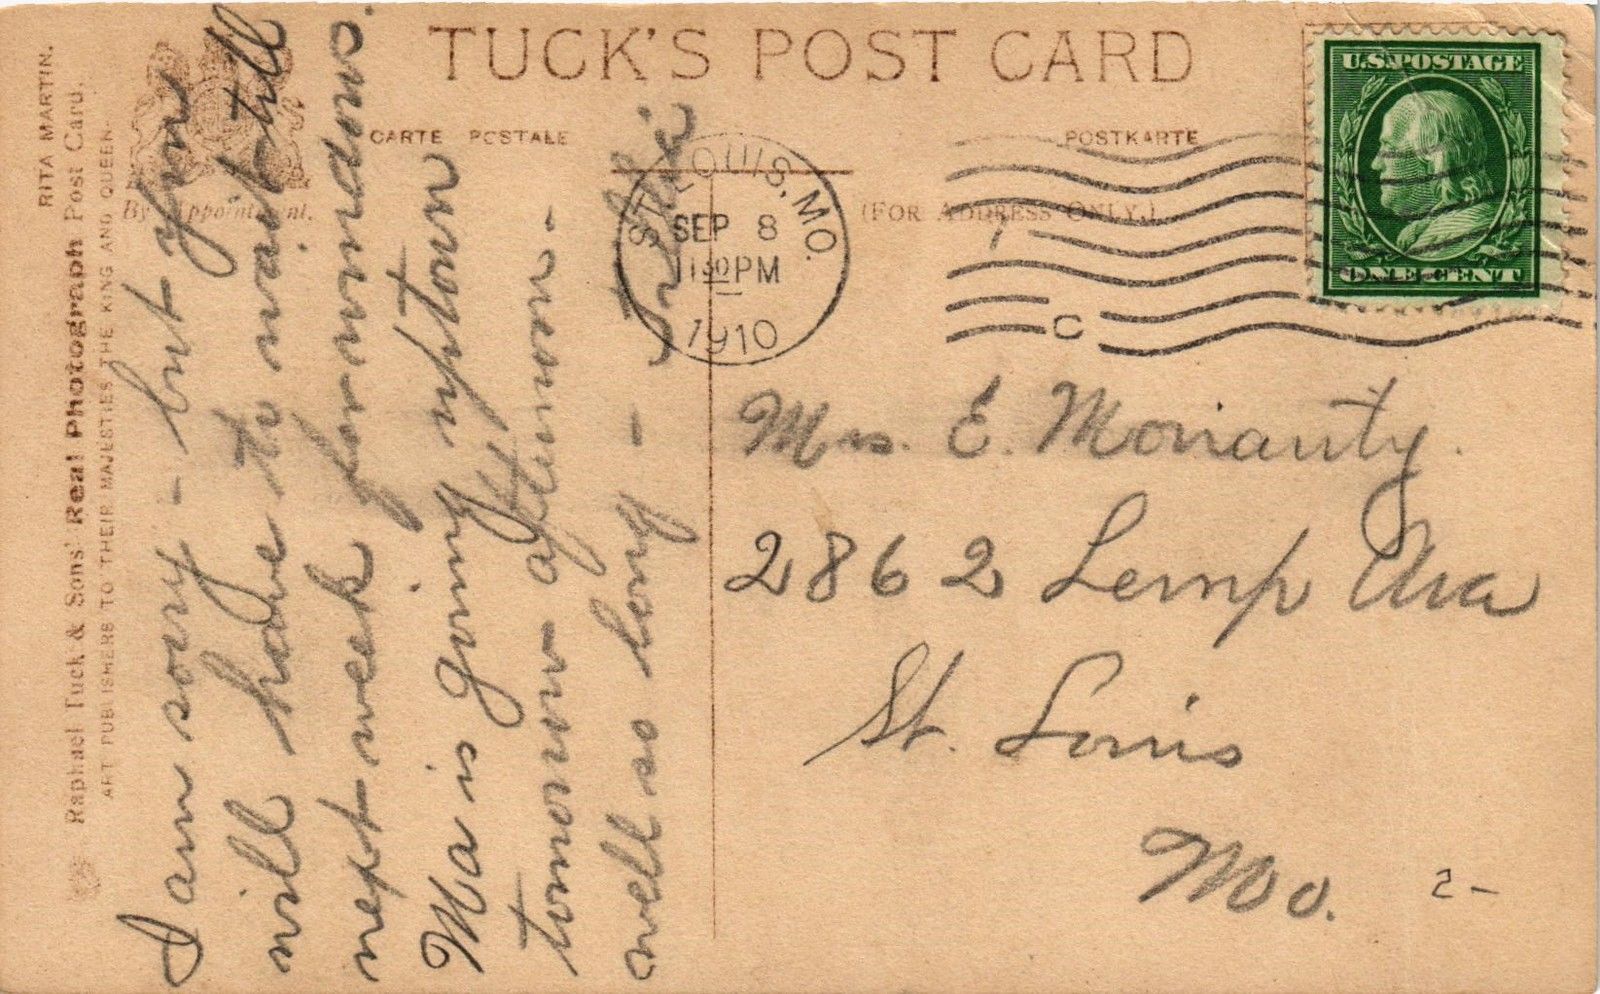 TUCK'S POST CARD
CARTE POSTALE
POSTKARTE
(FOR ADDRESS ONLY.)
By Appointment.
RITA MARTIN.
Raphael Tuck & Sons' Real Photograph Post Card.
ART PUBLISHERS TO THEIR MAJESTIES THE KING AND QUEEN.
U.S. POSTAGE
ONE CENT
ST. LOUIS, MO.
SEP 8
11 30 PM
1910
C
I am sorry - but you
will have to wait till
next week for windows.
Ma is going uptown
tomorrow afternoon -
well so long -
Mrs. E. Moriarity.
2862 Lemp Ava
St. Louis
Mo.
2-